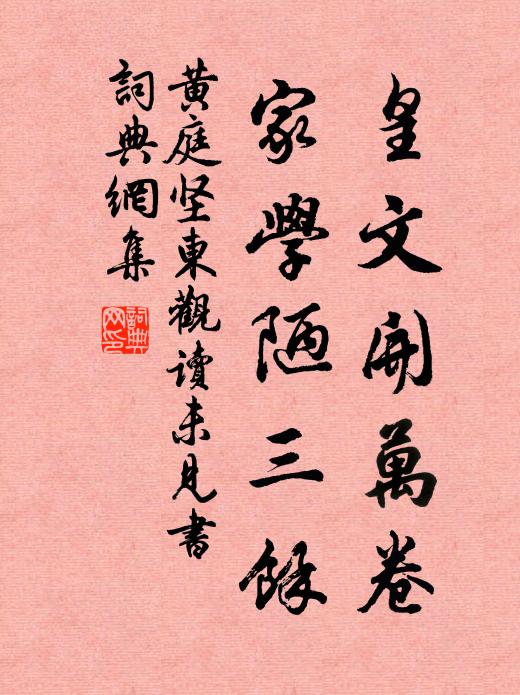 皇文開萬卷
家學陋三餘
黄庭坚東觀讀未見書
詞典網集
詞典
网印